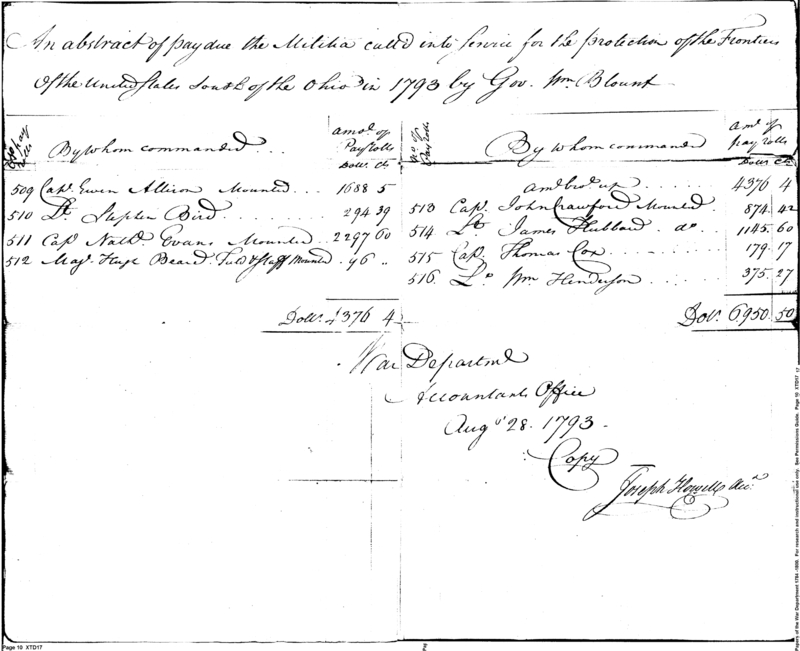 An abstract of pay due the Militia call'd into Service for the protection of the Frontiers
Of the United States South of the Ohio in 1793 by Gov. Wm. Blount
No. of pay rolls
By whom commanded
amot. of
Pay Rolls
Dolls. Cts.
509 Capt. Ewen Allison Mounted 1688 5
510 Lt. Stephen Bird 294 39
511 Capt. Nathl. Evans Mounted 2297 60
512 Majr. Hugh Beard Field & Staff Mounted 96 "
Dolls. 4376 4
No. of Pay Rolls
By whom commanded
amt. of
pay rolls
Dolls. Cts.
amt. brot. up 4376 4
513 Capt. John Crawford Mounted 874 42
514 Lt. James Hubbard do. 1145. 60
515 Capt. Thomas Cox 179. 17
516. Lt. Wm. Henderson 375. 27
Dolls. 6950 50
War Department
Accountants Office
Augt. 28. 1793.
Copy
Joseph Howell Acct.
Page 10 XTD17
Papers of the War Department 1784-1800. For research and instructional use only. See Permissions Guide. Page 10 XTD17 17